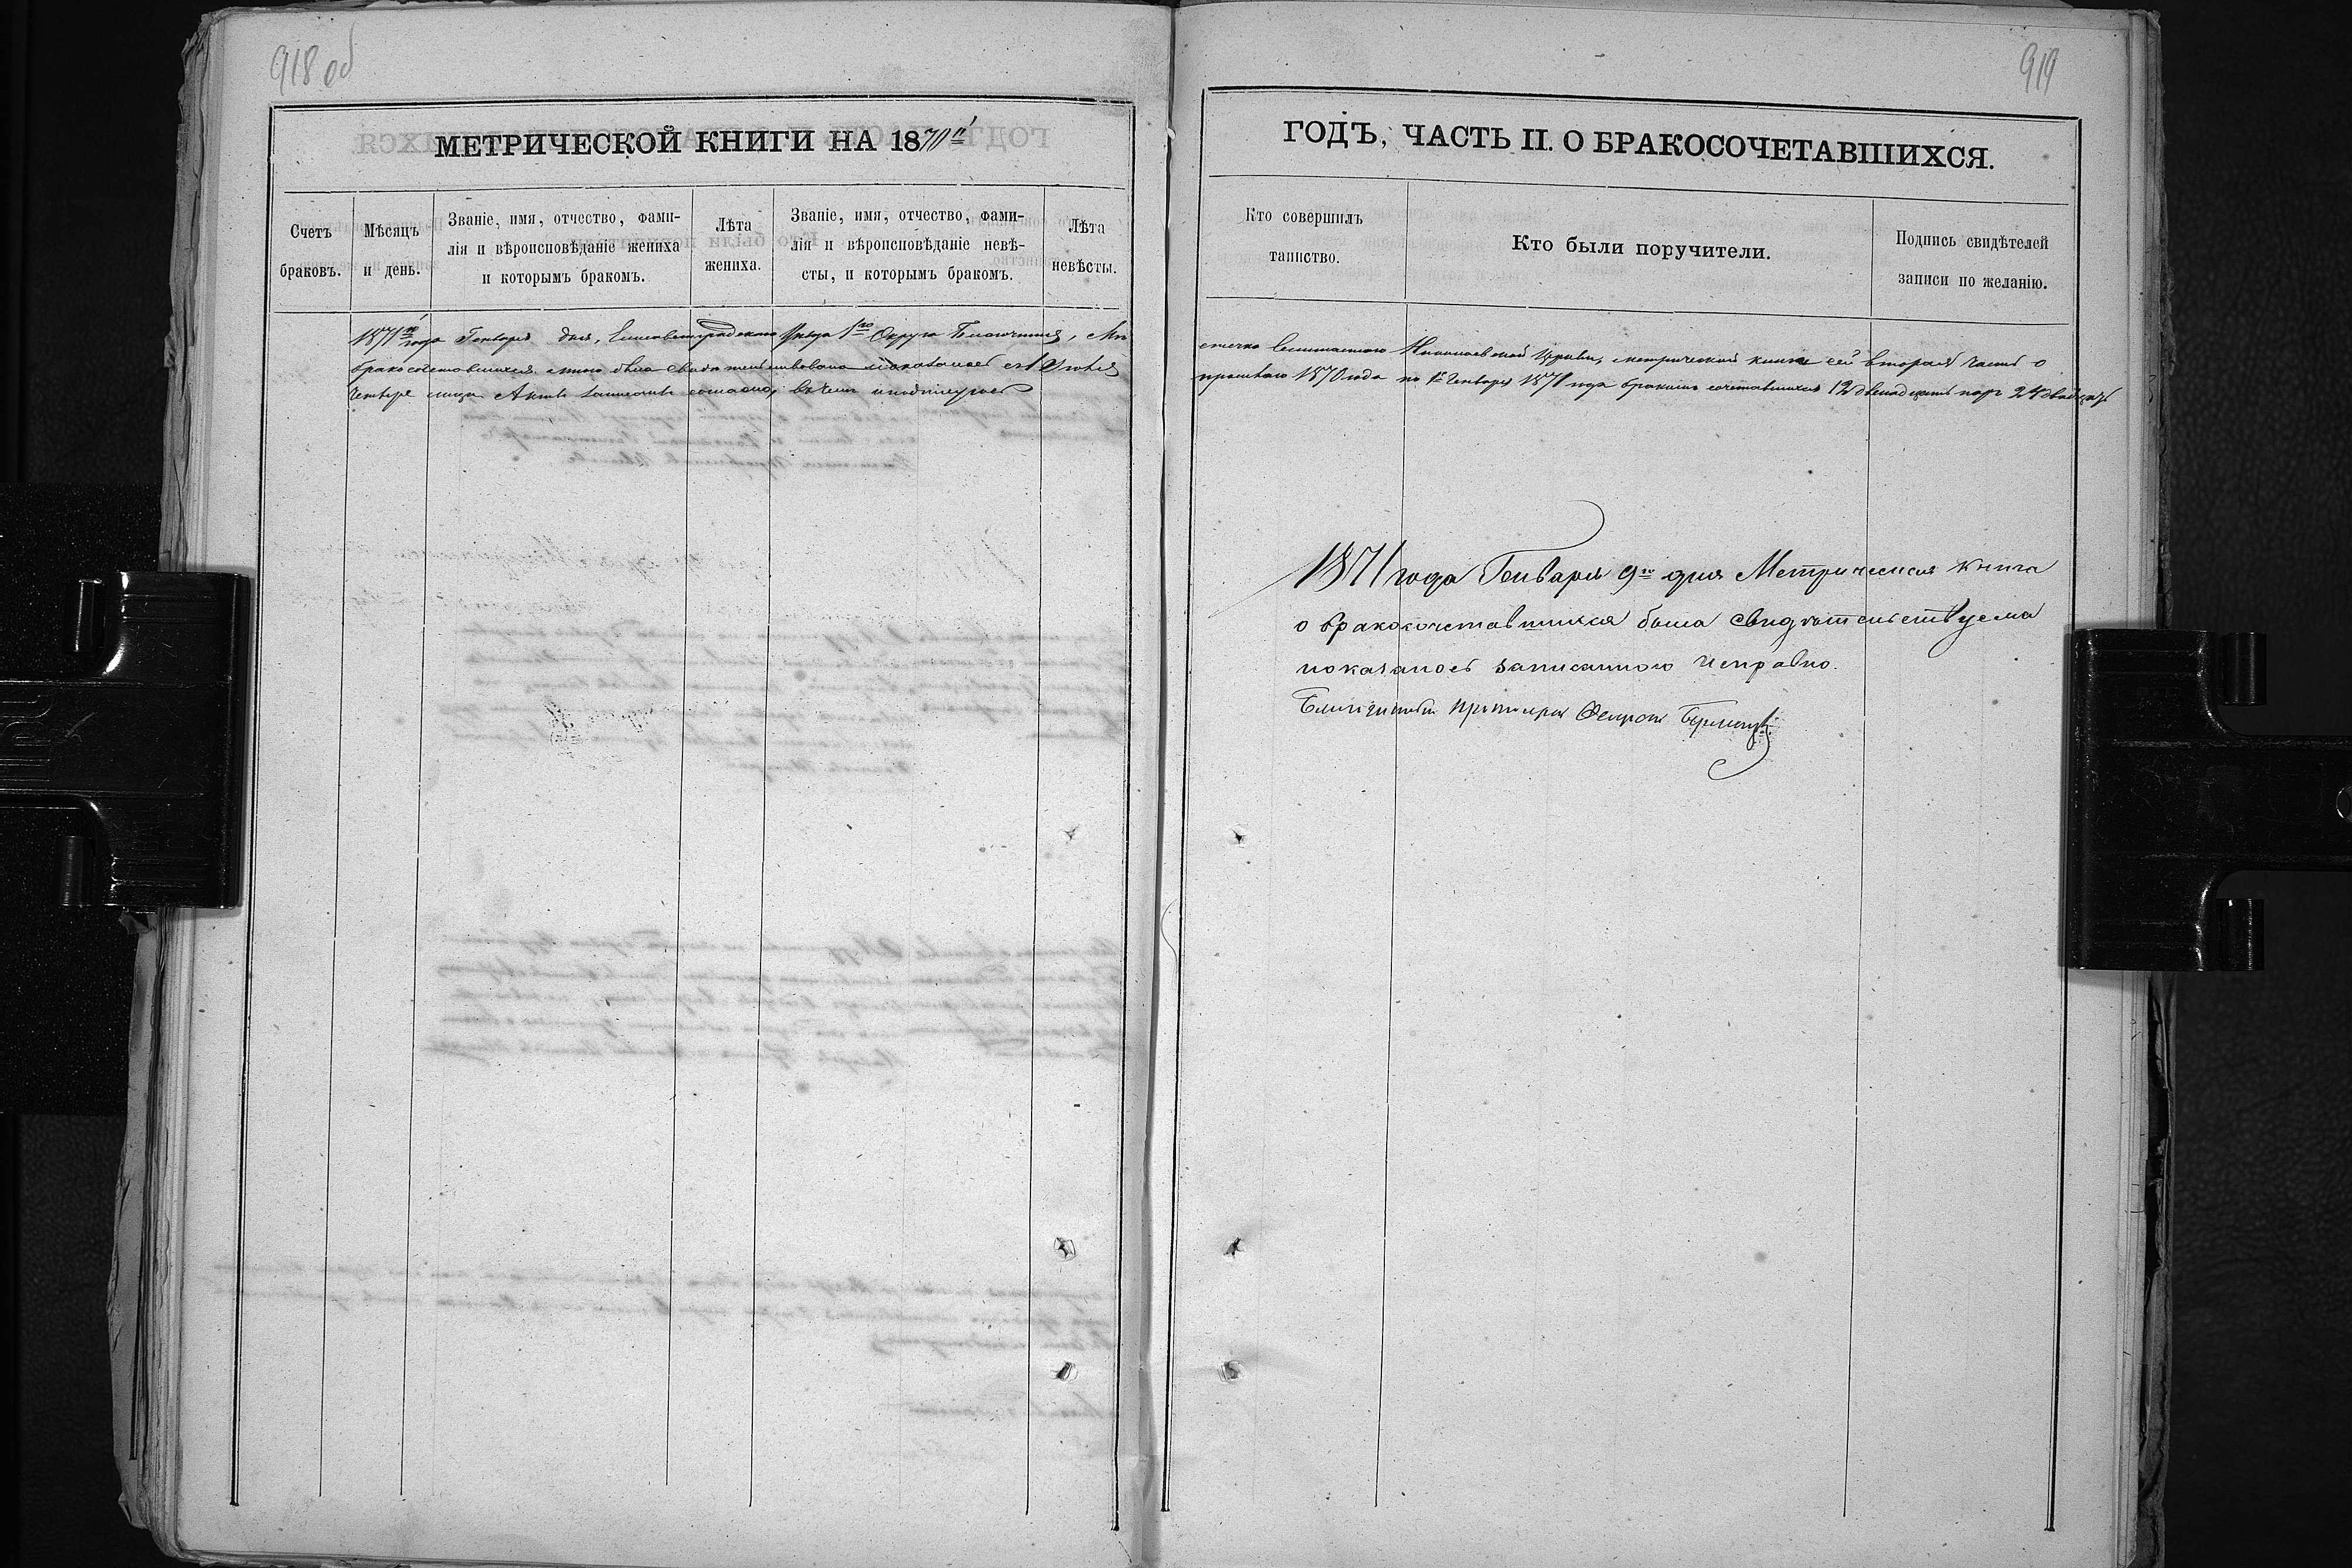 918 об
МЕТРИЧЕСКОЙ КНИГИ НА 1870й
Счетъ браковъ.
Мѣсяцъ и день.
Званіе, имя, отчество, фами-
лія и вѣроисповѣданіе жениха
и которымъ бракомъ.
Лѣта жениха.
Званіе, имя, отчество, фами-
лія и вѣроисповѣданіе невѣ-
сты, и которымъ бракомъ.
Лѣта невѣсты.
1871го года Генваря дня, Елисаветградскаго Уѣзда 1го Округа Благочинія, Мѣ
бракосочетавшихся мною была свидѣтельствована и оказалось съ 1 Января
четыре лица Актъ записанъ согласно, въ чемъ и подписуюсь
919
ГОДЪ, ЧАСТЬ II. О БРАКОСОЧЕТАВШИХСЯ.
Кто совершилъ
таинство.
Кто были поручители.
Подпись свидѣтелей
записи по желанію.
стечка Николаевской Церкви, метрической книги сей вторая часть о
прошлаго 1870 года по 1е Генваря 1871 года бракомъ сочетавшихся 12 двенадцать паръ 24 двадцать
1871 года Генваря 9го дня Метрическая книга
о бракосочетавшихся была свидѣтельствуема
показалось записанною исправно.
Благочинный Протоіерей